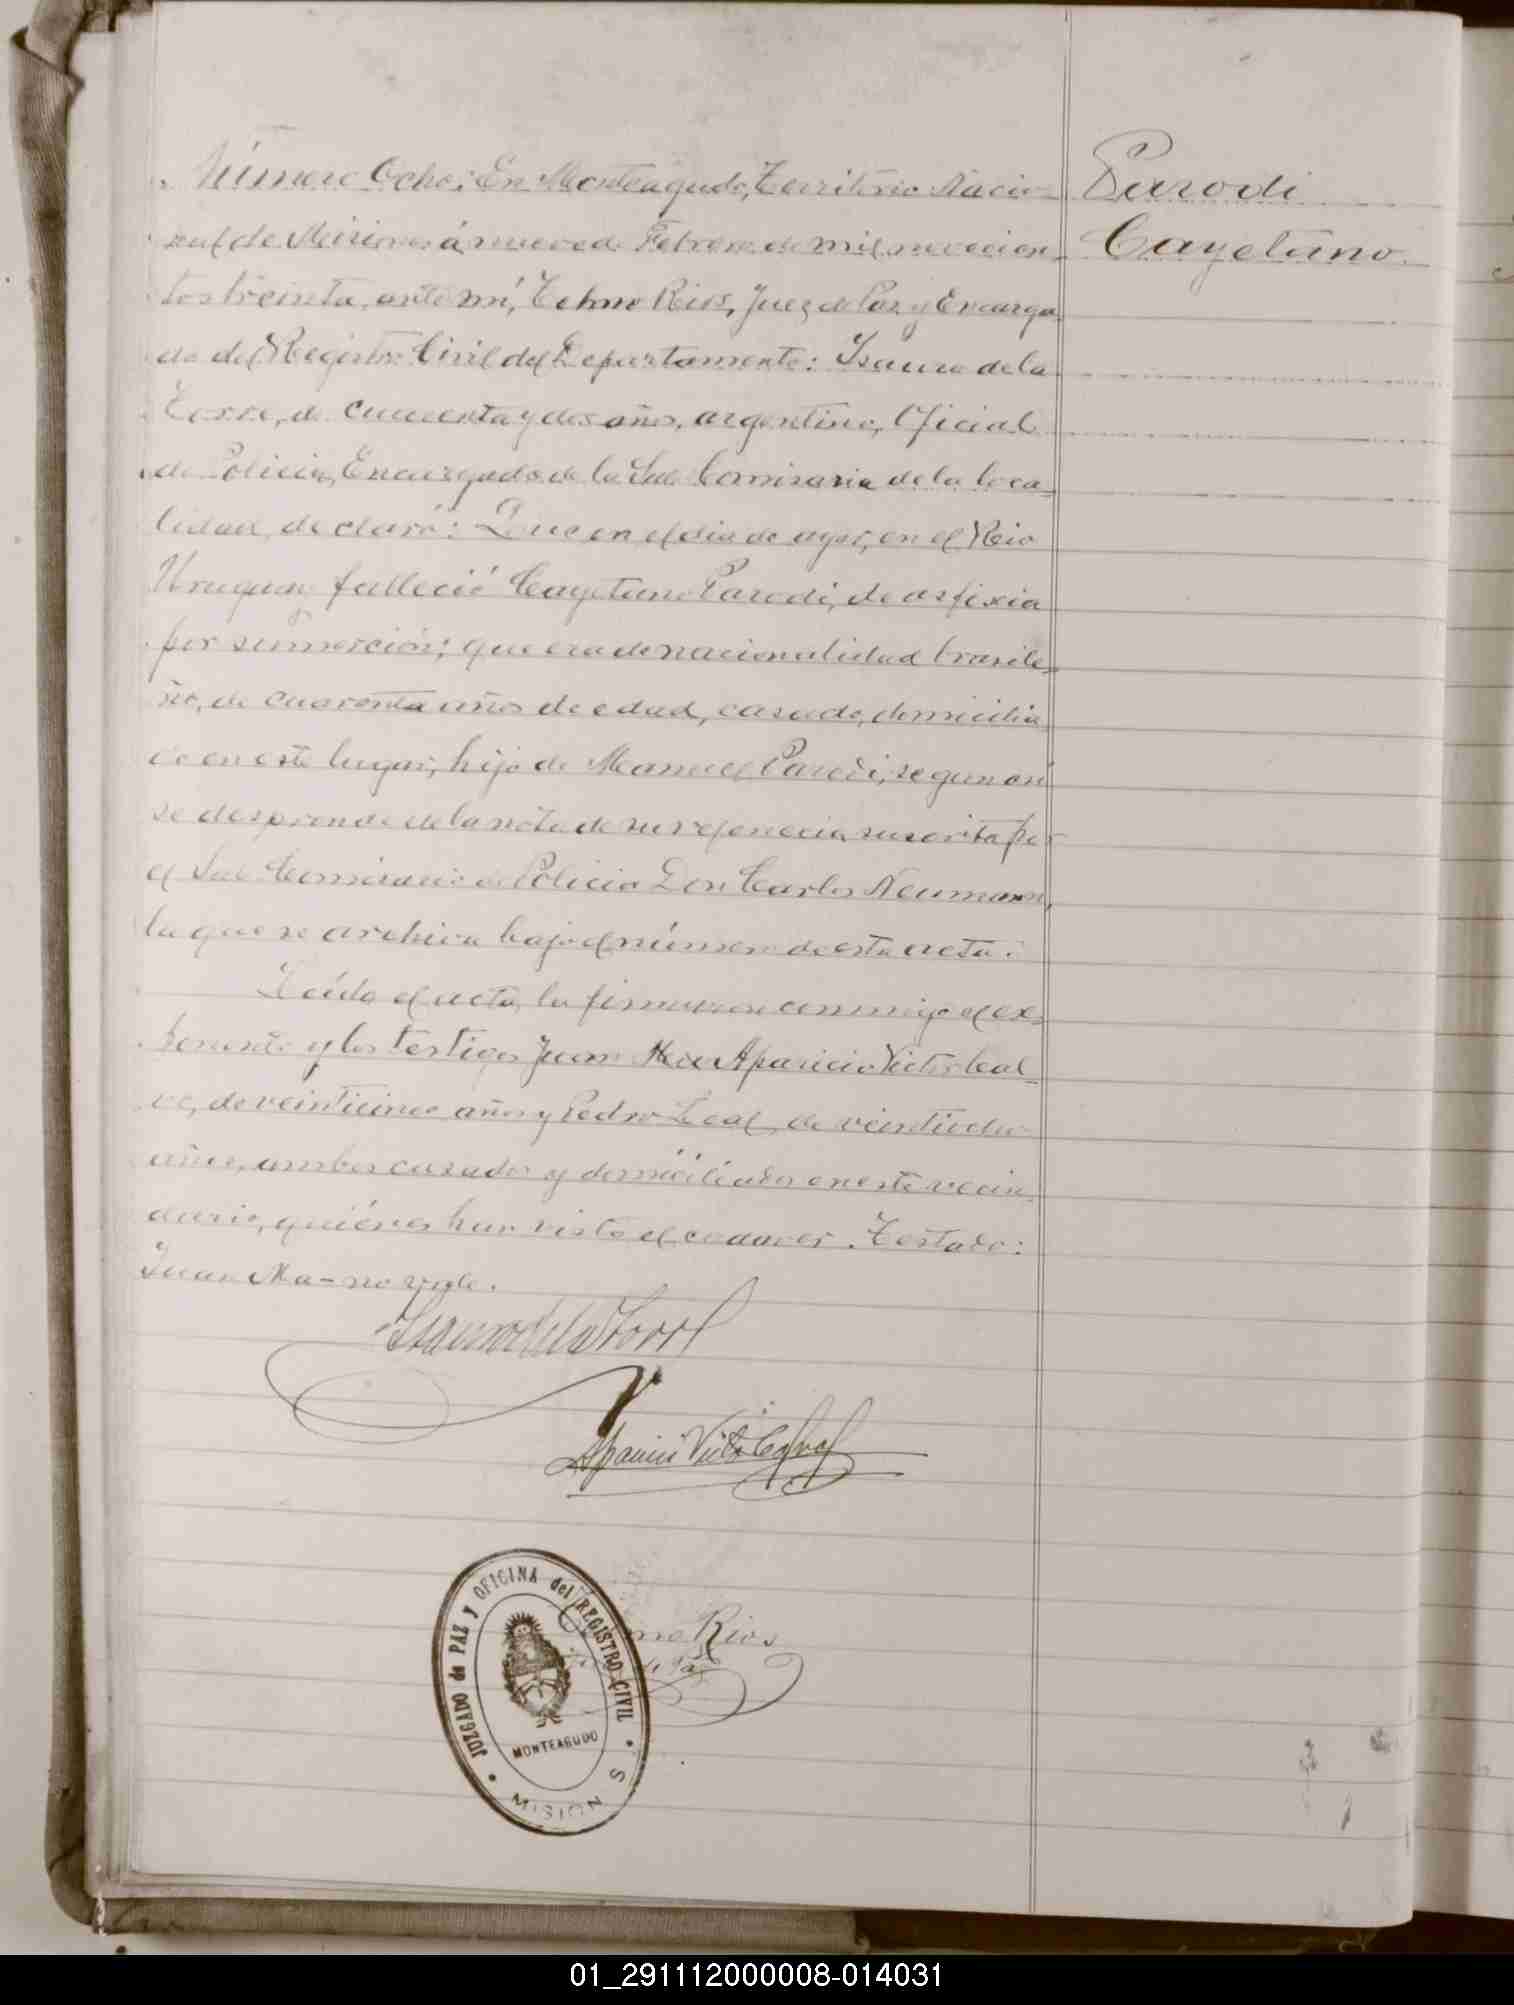 Número Ocho: En Monteagudo, Territorio Nacio-
nal de Misiones á nueve de Febrero de mil novecien-
tos treinta, ante mí, Telmo Rios, Juez de Paz y Encarga-
do del Registro Civil del Departamento: Isauro de la
Torre, de cincuenta y dos años, argentino, Oficial
de Policia, Encargado de la Sub Comisaria de la loca-
lidad, declaró: Que en el dia de ayer, en el Rio
Uruguay falleció Cayetano Parodi, de asfixia
por sumerción; que era de nacionalidad brasile-
ño, de cuarenta años de edad, casado, domicilia-
do en este lugar, hijo de Manuel Parodi, segun asi
se desprende de la nota de su referencia suscrita por
el Sub Comisario de Policia Don Carlos Neumann,
la que se archiva bajo el número de esta acta.
Leída el acta, la firmaron conmigo el ex-
ponente y los testigos Juan Ma Aparicio Victor Cal-
vo, de veinticinco años y Pedro Leal, de veintiocho
años, ambos casados y domiciliados en este vecin-
dario, quiénes han visto el cadaver. Testado:
Juan Ma - no vale.
Isauro de la Torre
Aparicio Victor Calvo
Rios
Parodi
Cayetano
JUZGADO de PAZ y OFICINA del REGISTRO CIVIL
MONTEAGUDO
MISIONES
01_291112000008-014031